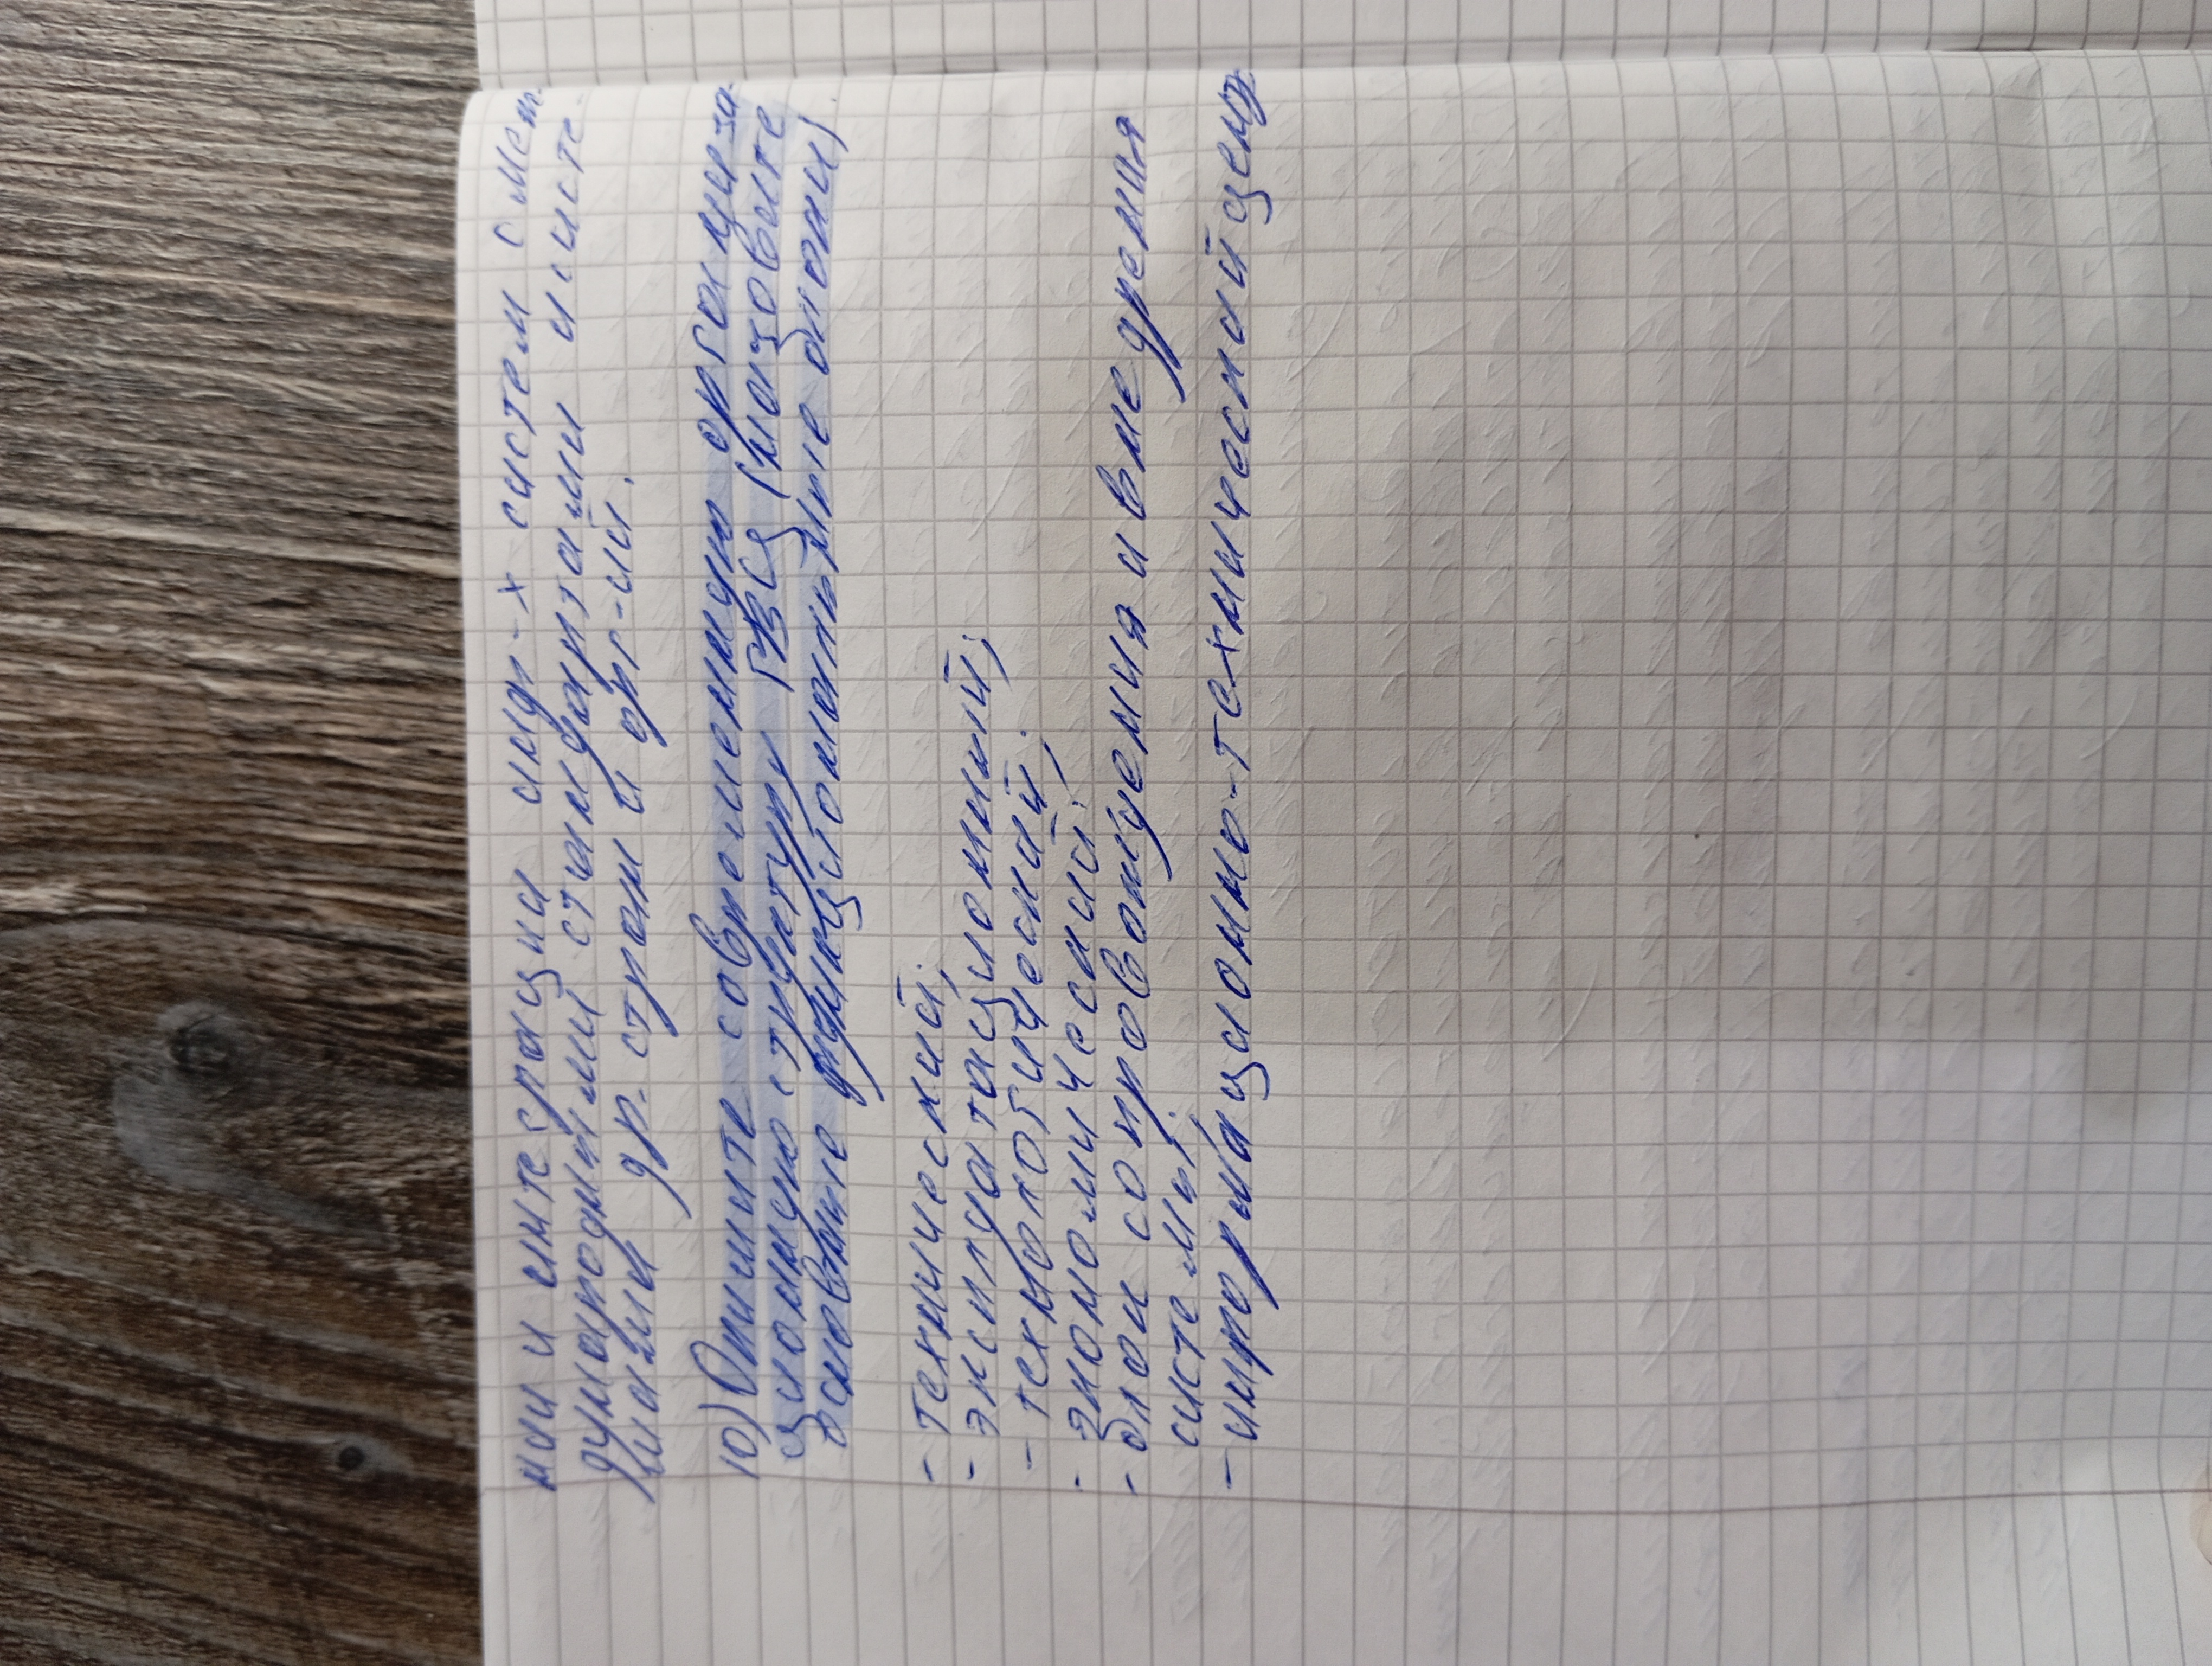 нии и интеграции инф-х систем с меж-
дународными стандартами и систе-
мами др. стран и орг-ий.
10) Опишите современную организа-
ционную структуру ГВЦ (назовите
основные функциональные блоки)
- технический;
- эксплуатационный;
- технологический;
- экономический;
- блок сопровождения и внедрения
системы;
- информационно-технический центр